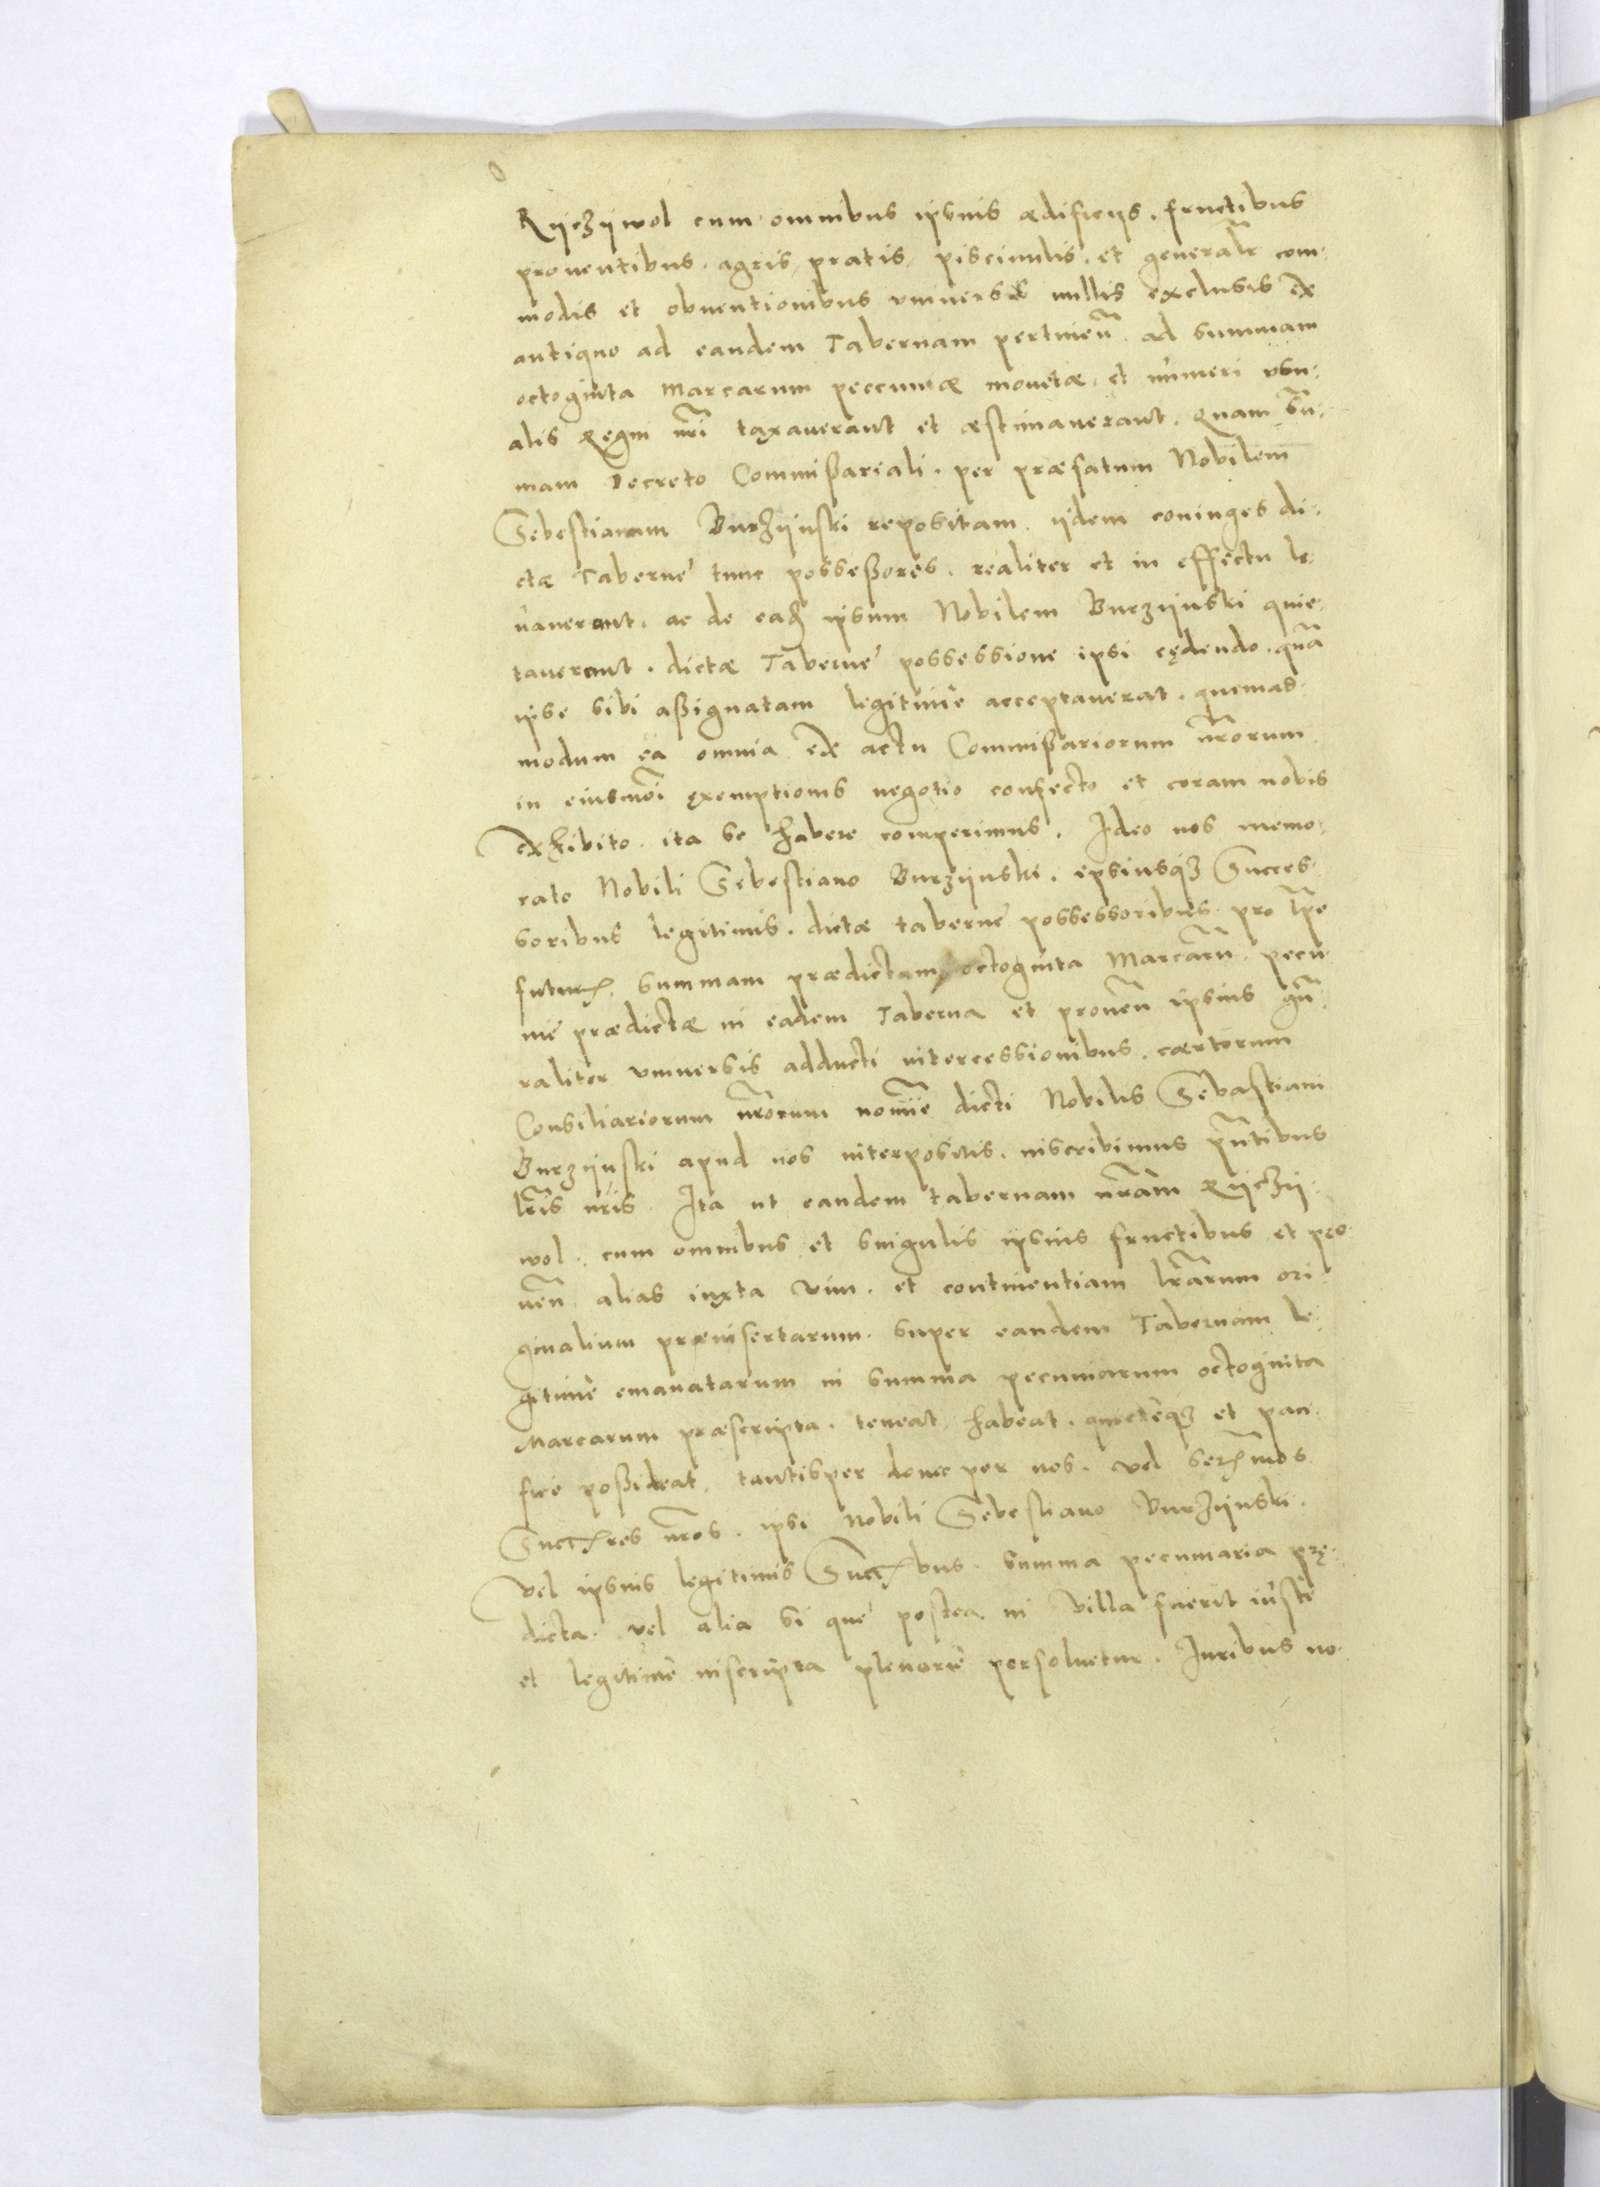 Ryczywol cum omnibus ipsius ædificijs, fructibus
proventibus, agris, pratis, piscinulis, et generalr com-
modis et obventionibus universis nullis exclusis ex
antiquo ad eandem Tabernam pertineñ ad summam
octoginta Marcarum peccuniæ monetæ, et numeri usu-
alis Regni nrī taxaverant et æstimaverant. Quam sū-
mam Decreto Commißariali, per præfatum Nobilem
Sebestianum Burzÿnski repositam, ijdem coniuges di-
ctæ Tabernę tunc posseßores, realiter et in effectu le-
vaverant, ac de eadē ipsum Nobilem Burzÿnski quie-
taverant, dictæ Tabernę possessione ipsi cędendo, quā
ipse sibi aßignatam legitime acceptaverat, quemad-
modum ea omnia ex actu Commißariorum nrorum
in eiusmōi exemptionis negotio confecto et coram nobis
exhibito, ita se habere comperimus. Ideo nos memo-
rato Nobili Sebestiano Burzÿnski, ipsiusqȝ Succes-
soribus legitimis, dictæ tabernę possessoribus pro tpe
futuris, summam prædictam octoginta Marcarū pecu-
nię prædictæ in eadem Taberna et proveñ ipsius gñ-
raliter universis adducti intercessionibus, cærtorum
Consiliariorum nrorum nomīe dicti Nobilis Sebastiani
Burzÿnski apud nos interpositis, inscribimus pñtibus
lrīs nrīs. Ita ut eandem tabernam nrām Rÿczÿ-
wol, cum omnibus et singulis ipsius fructibus et pro-
veñ alias iuxta vim, et continentiam lrārum ori-
ginalium præinsertarum, super eandem Tabernam le-
gitime emanatarum in summa pecuniarum octoginta
Marcarum præscripta, teneat, habeat, quieteqȝ et paci-
fice poßideat, tantisper donec per nos, vel serēmos
Succres nros, ipsi Nobili Sebestiano Burzÿnski,
vel ipsius legitimis Succbus, summa pecuniaria prę-
dicta, vel alia si quę postea in villa fuerit iuste
et legitime inscripta plenarie persolvetur. Iuribus no-